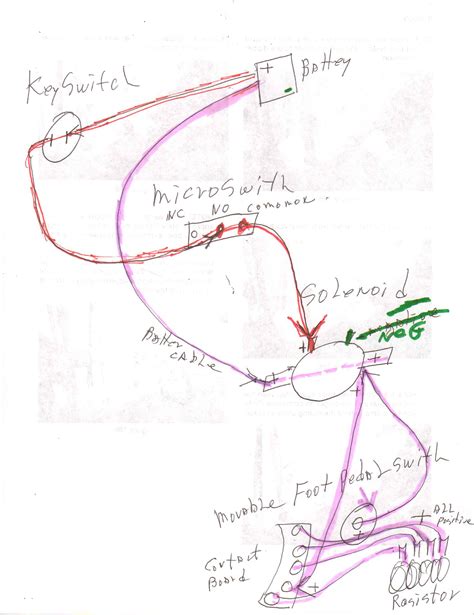 Battery
KeySwitch
MicroSwith
NC NO Comomon.
Solenoid
NEG
Batter
CABLE
Movable Foot Pedal Swith
ALL
positive
Contact
Board
Resistor